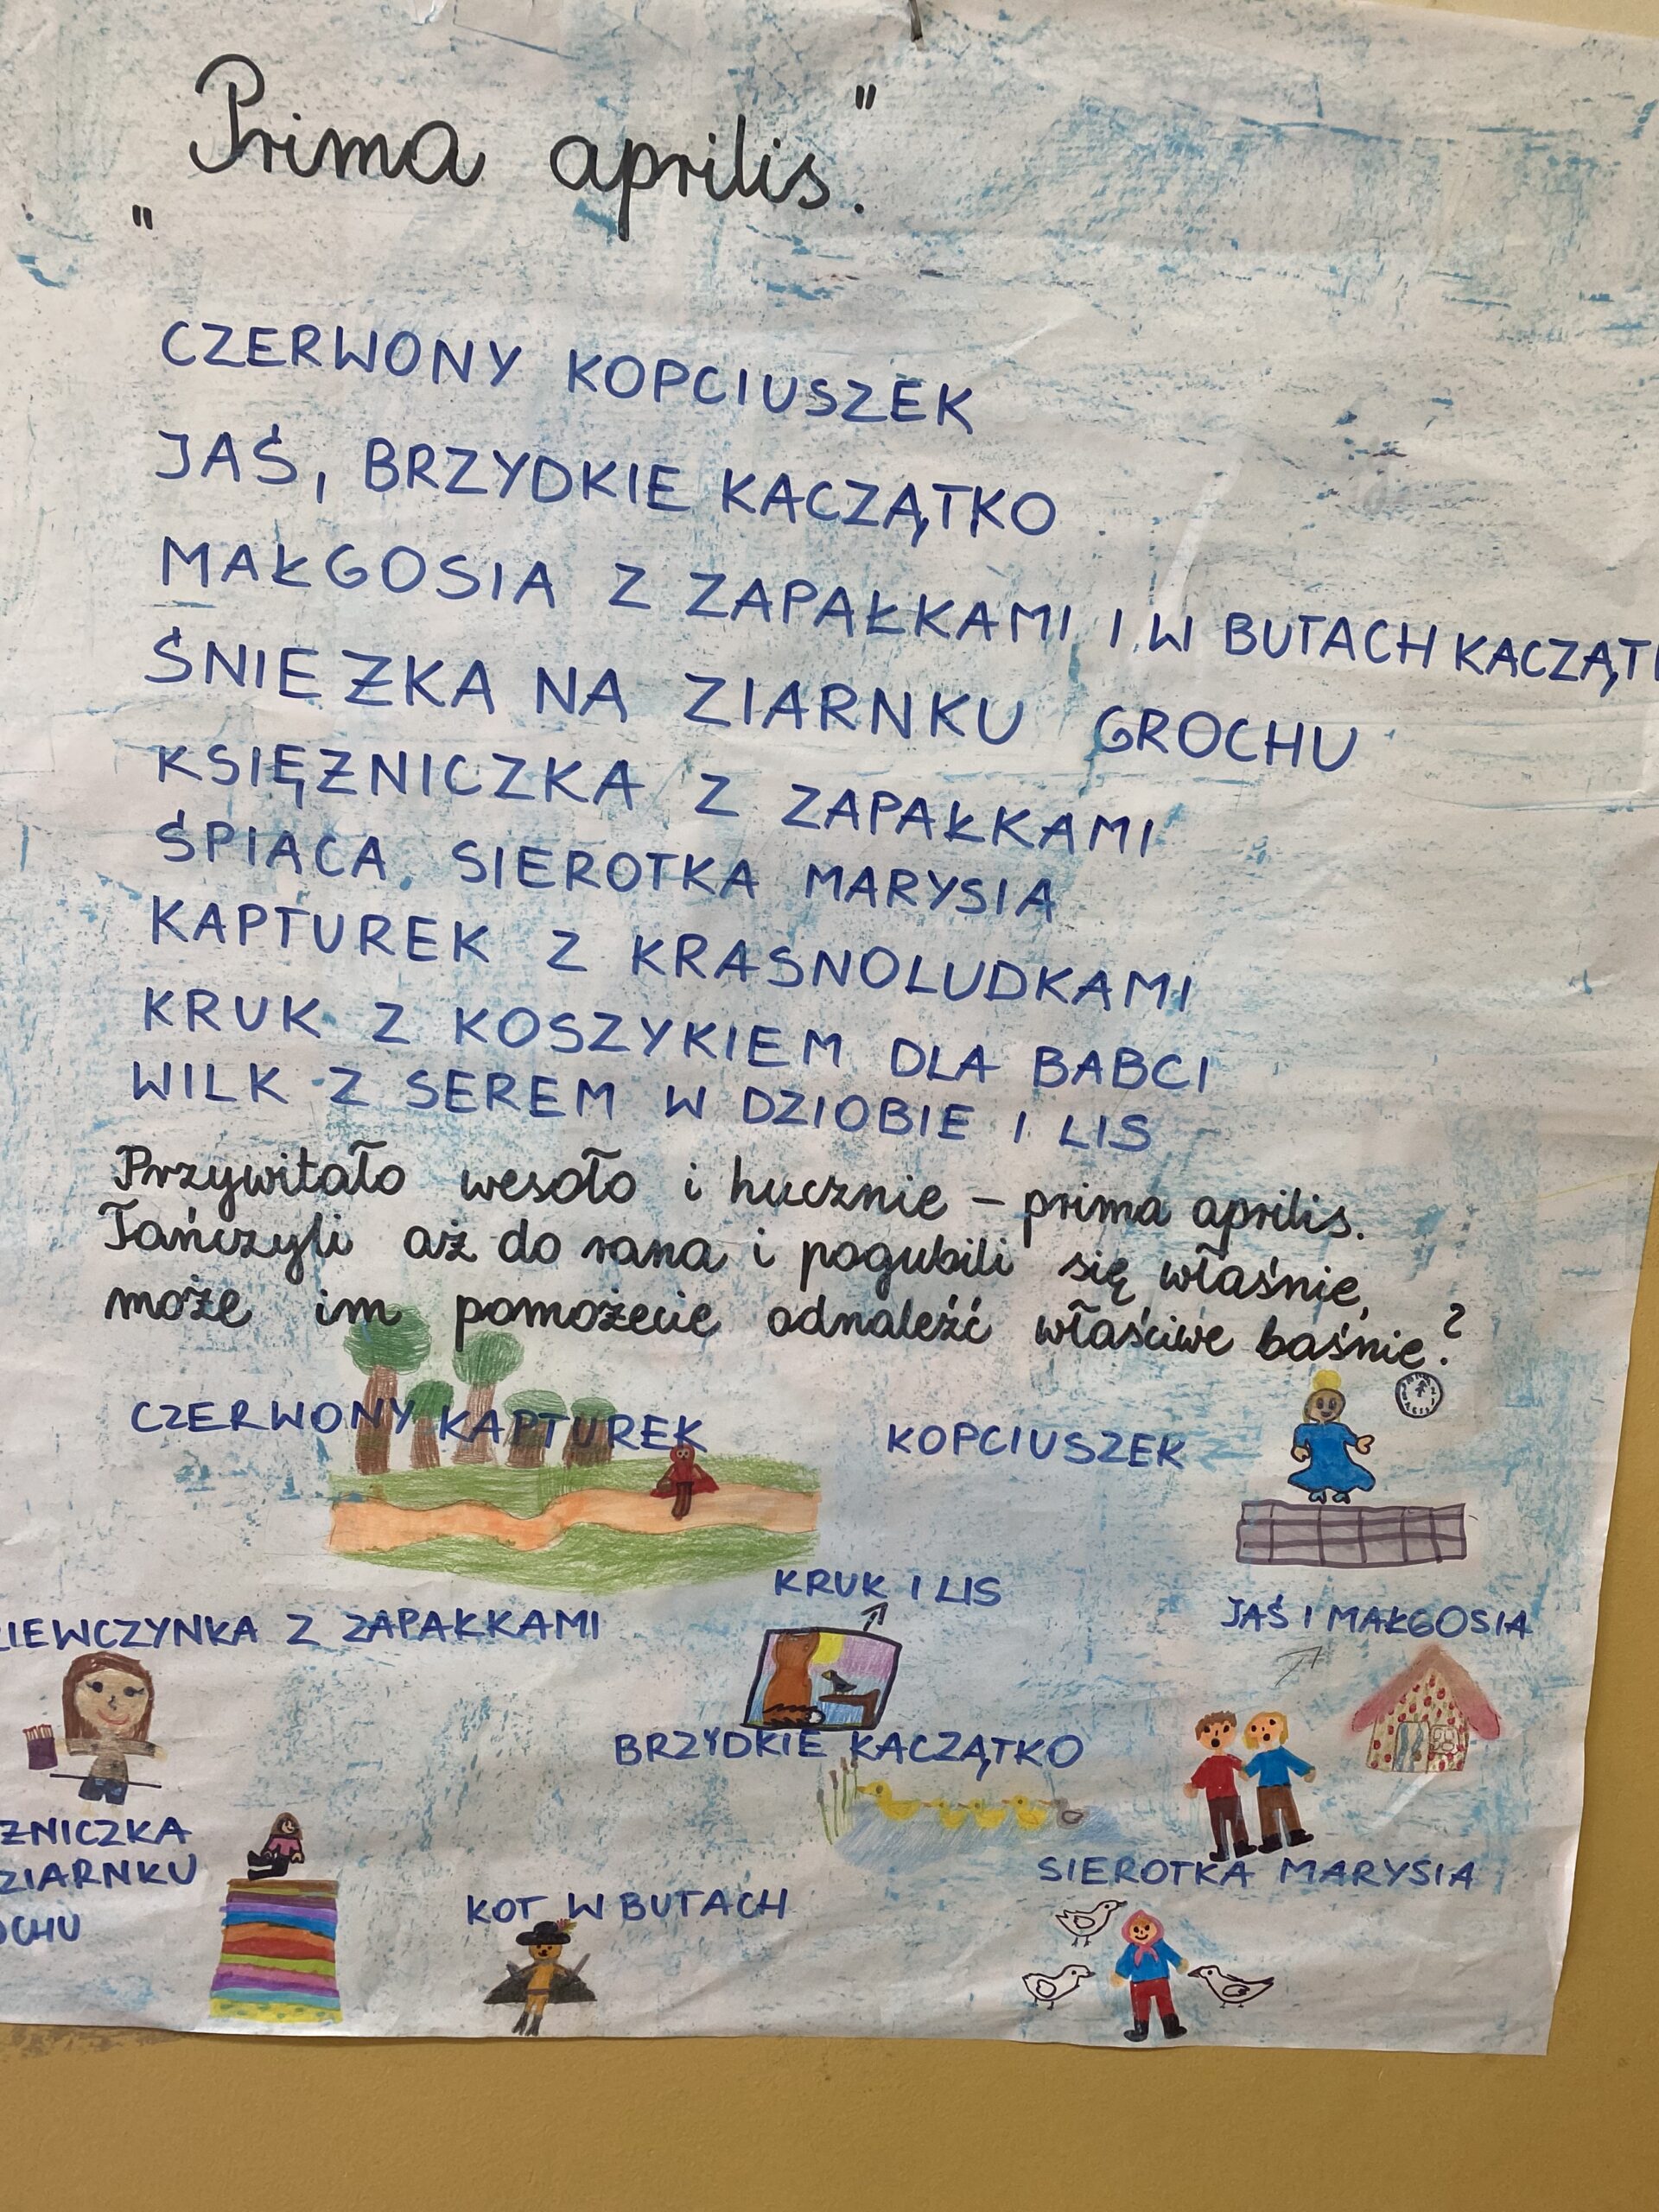 „Prima aprilis."
CZERWONY KOPCIUSZEK
JAŚ, BRZYDKIE KACZĄTKO
MAŁGOSIA Z ZAPAŁKAMI I W BUTACH KACZĄT
ŚNIEŻKA NA ZIARNKU GROCHU
KSIĘŻNICZKA Z ZAPAŁKAMI
ŚPIĄCA SIEROTKA MARYSIA
KAPTUREK Z KRASNOLUDKAMI
KRUK Z KOSZYKIEM DLA BABCI
WILK Z SEREM W DZIOBIE I LIS
Przywitało wesoło i hucznie – prima aprilis.
Tańczyli aż do rana i pogubili się właśnie,
może im pomożecie odnaleźć właściwe baśnie?
CZERWONY KAPTUREK
KOPCIUSZEK
KRUK I LIS
JAŚ I MAŁGOSIA
IEWCZYNKA Z ZAPAŁKAMI
BRZYDKIE KACZĄTKO
ŻNICZKA
ZIARNKU
OCHU
KOT W BUTACH
SIEROTKA MARYSIA